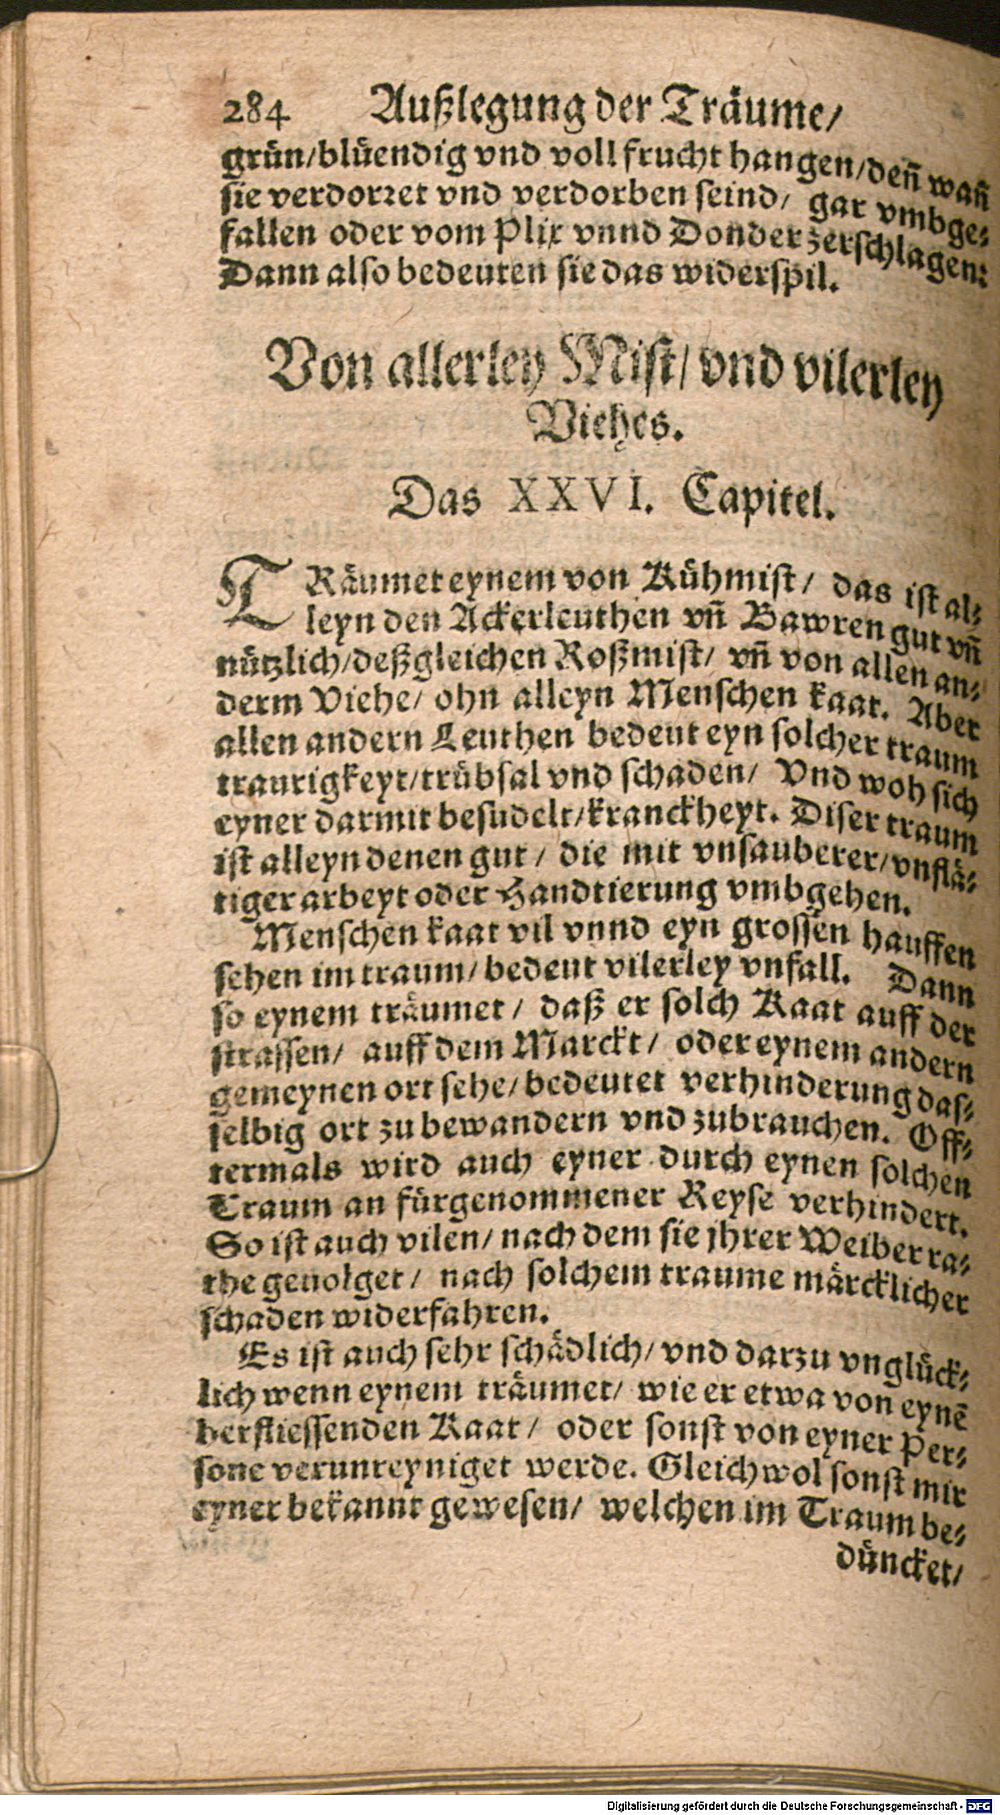 284 Außlegung der Träume/
grün/blüendig vnd voll frucht hangen/deñ wañ
sie verdorret vnd verdorben seind/ gar vmbge-
fallen oder vom Plix vnnd Donder zerschlagen:
Dann also bedeuten sie das widerspil.
Von allerley Mist/ vnd vilerley
Viehes.
Das XXVI. Capitel.
TRäumet eynem von Kühmist/ das ist al-
leyn den Ackerleuthen vñ Bawren gut vñ
nützlich/deßgleichen Roßmist/ vñ von allen an-
derm Viehe/ ohn alleyn Menschen kaat. Aber
allen andern Leuthen bedeut eyn solcher traum
traurigkeyt/trübsal vnd schaden/ Vnd woh sich
eyner darmit besudelt/kranckheyt. Diser traum
ist alleyn denen gut/ die mit vnsauberer/vnflä-
tiger arbeyt oder Handtierung vmbgehen.
Menschen kaat vil vnnd eyn grossen hauffen
sehen im traum/bedeut vilerley vnfall. Dann
so eynem träumet/ daß er solch Kaat auff der
strassen/ auff dem Marckt/ oder eynem andern
gemeynen ort sehe/bedeutet verhinderung das-
selbig ort zu bewandern vnd zubrauchen. Off-
termals wird auch eyner durch eynen solchen
Traum an fürgenommener Reyse verhindert.
So ist auch vilen/ nach dem sie jhrer Weiber ra-
the geuolget/ nach solchem traume märcklicher
schaden widerfahren.
Es ist auch sehr schädlich/ vnd darzu vnglück-
lich wenn eynem träumet/ wie er etwa von eynẽ
herfliessenden Kaat/ oder sonst von eyner Per-
sone verunreyniget werde. Gleichwol sonst mir
eyner bekannt gewesen/ welchen im Traum be-
düncket/
Digitalisierung gefördert durch die Deutsche Forschungsgemeinschaft - DFG